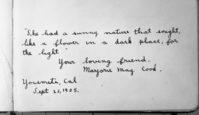 "She had a sunny nature that sought,
like a flower in a dark place, for
the light."
Your loving friend,
Marjorie May Cook.
Yosemite, Cal
Sept 23, 1908.